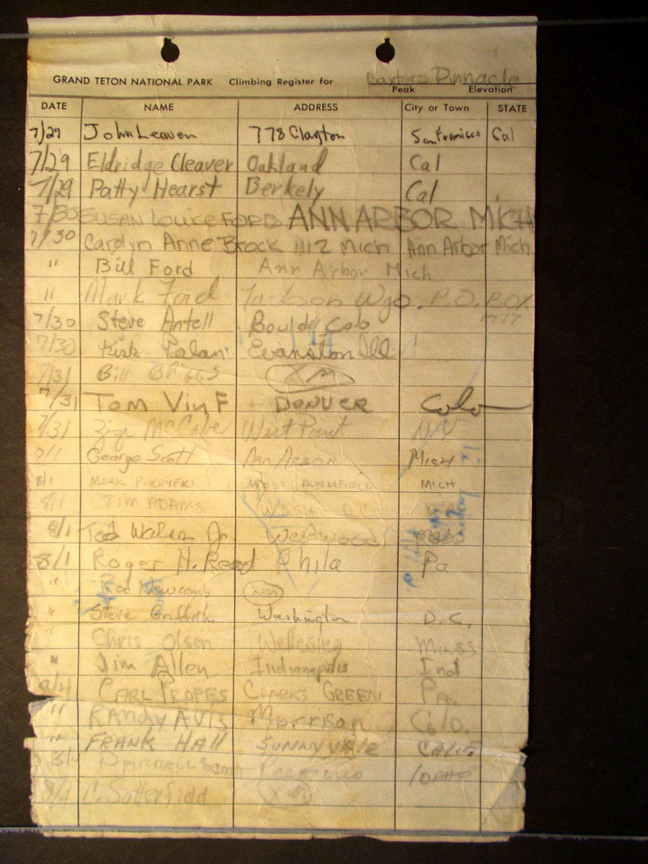 Baxters Pinnacle
GRAND TETON NATIONAL PARK Climbing Register for
Peak Elevation
DATE NAME ADDRESS City or Town STATE
7/29 John Leaven 778 Clayton San Francisco Cal
7/29 Eldridge Cleaver Oakland Cal
7/29 Patty Hearst Berkely Cal
7/30 SUSAN LOUICE FORD ANN ARBOR MICH
7/30 Carolyn Anne Brock 1112 Mich Ann Arbor Mich
" Bill Ford Ann Arbor Mich
" Mark Ford Jackson Wyo P.O. BOX
7/30 Steve Antell Boulder Colo
7/30 Kirk Evanston Ill
7/31 Bill BRIGGS XM
7/31 Tom Vin F DENVER Colo
7/31 McCabe West Point NY
George Scott Ann Arbor Mich
8/1 MARK WEST BLOOMFIELD MICH
8/1 TIM ADAMS WASH DC
8/1 Ted Jr. Westwood
8/1 Roger H. Reed Phila Pa
" Rod Newcomb XM
" Steve Griffith Washington D.C.
Chris Olson Wellesley Mass
" Jim Allen Indianapolis Ind
CARL PROPES CLARKS GREEN Pa
" RANDY AVIS Morrison Colo.
" FRANK HAll SUNNYVAle CALIF
Scott IDAHO
8/4 C. Satterfield XM